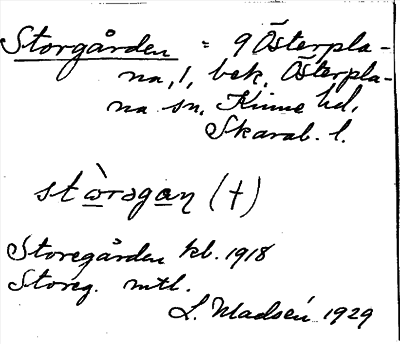 Storgården = 9 Österpla-
na, 1, bek. Österpla-
na sn, Kinne hd,
Skarab. l.
stὼrəgaη (t)
Storegården kb. 1918
Storeg. mtl.
L. Madsén 1929